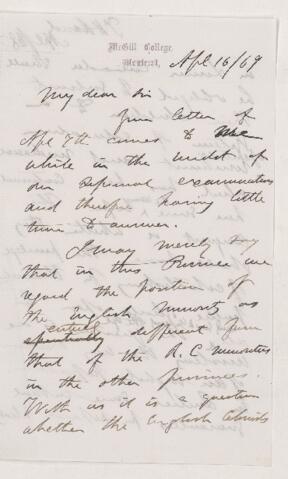 McGill College,
Montreal, Apl 16/69
My dear Sir
Your letter of
Apl 7th comes to me
while in the midst of
our sessional examinations
and therefore having little
time to answer.
I may merely say
that in this Province we
regard the position of
the English minority as
entirely different from
that of the R.C. minorities
in the other provinces.
With us it is a question
whether the English schools